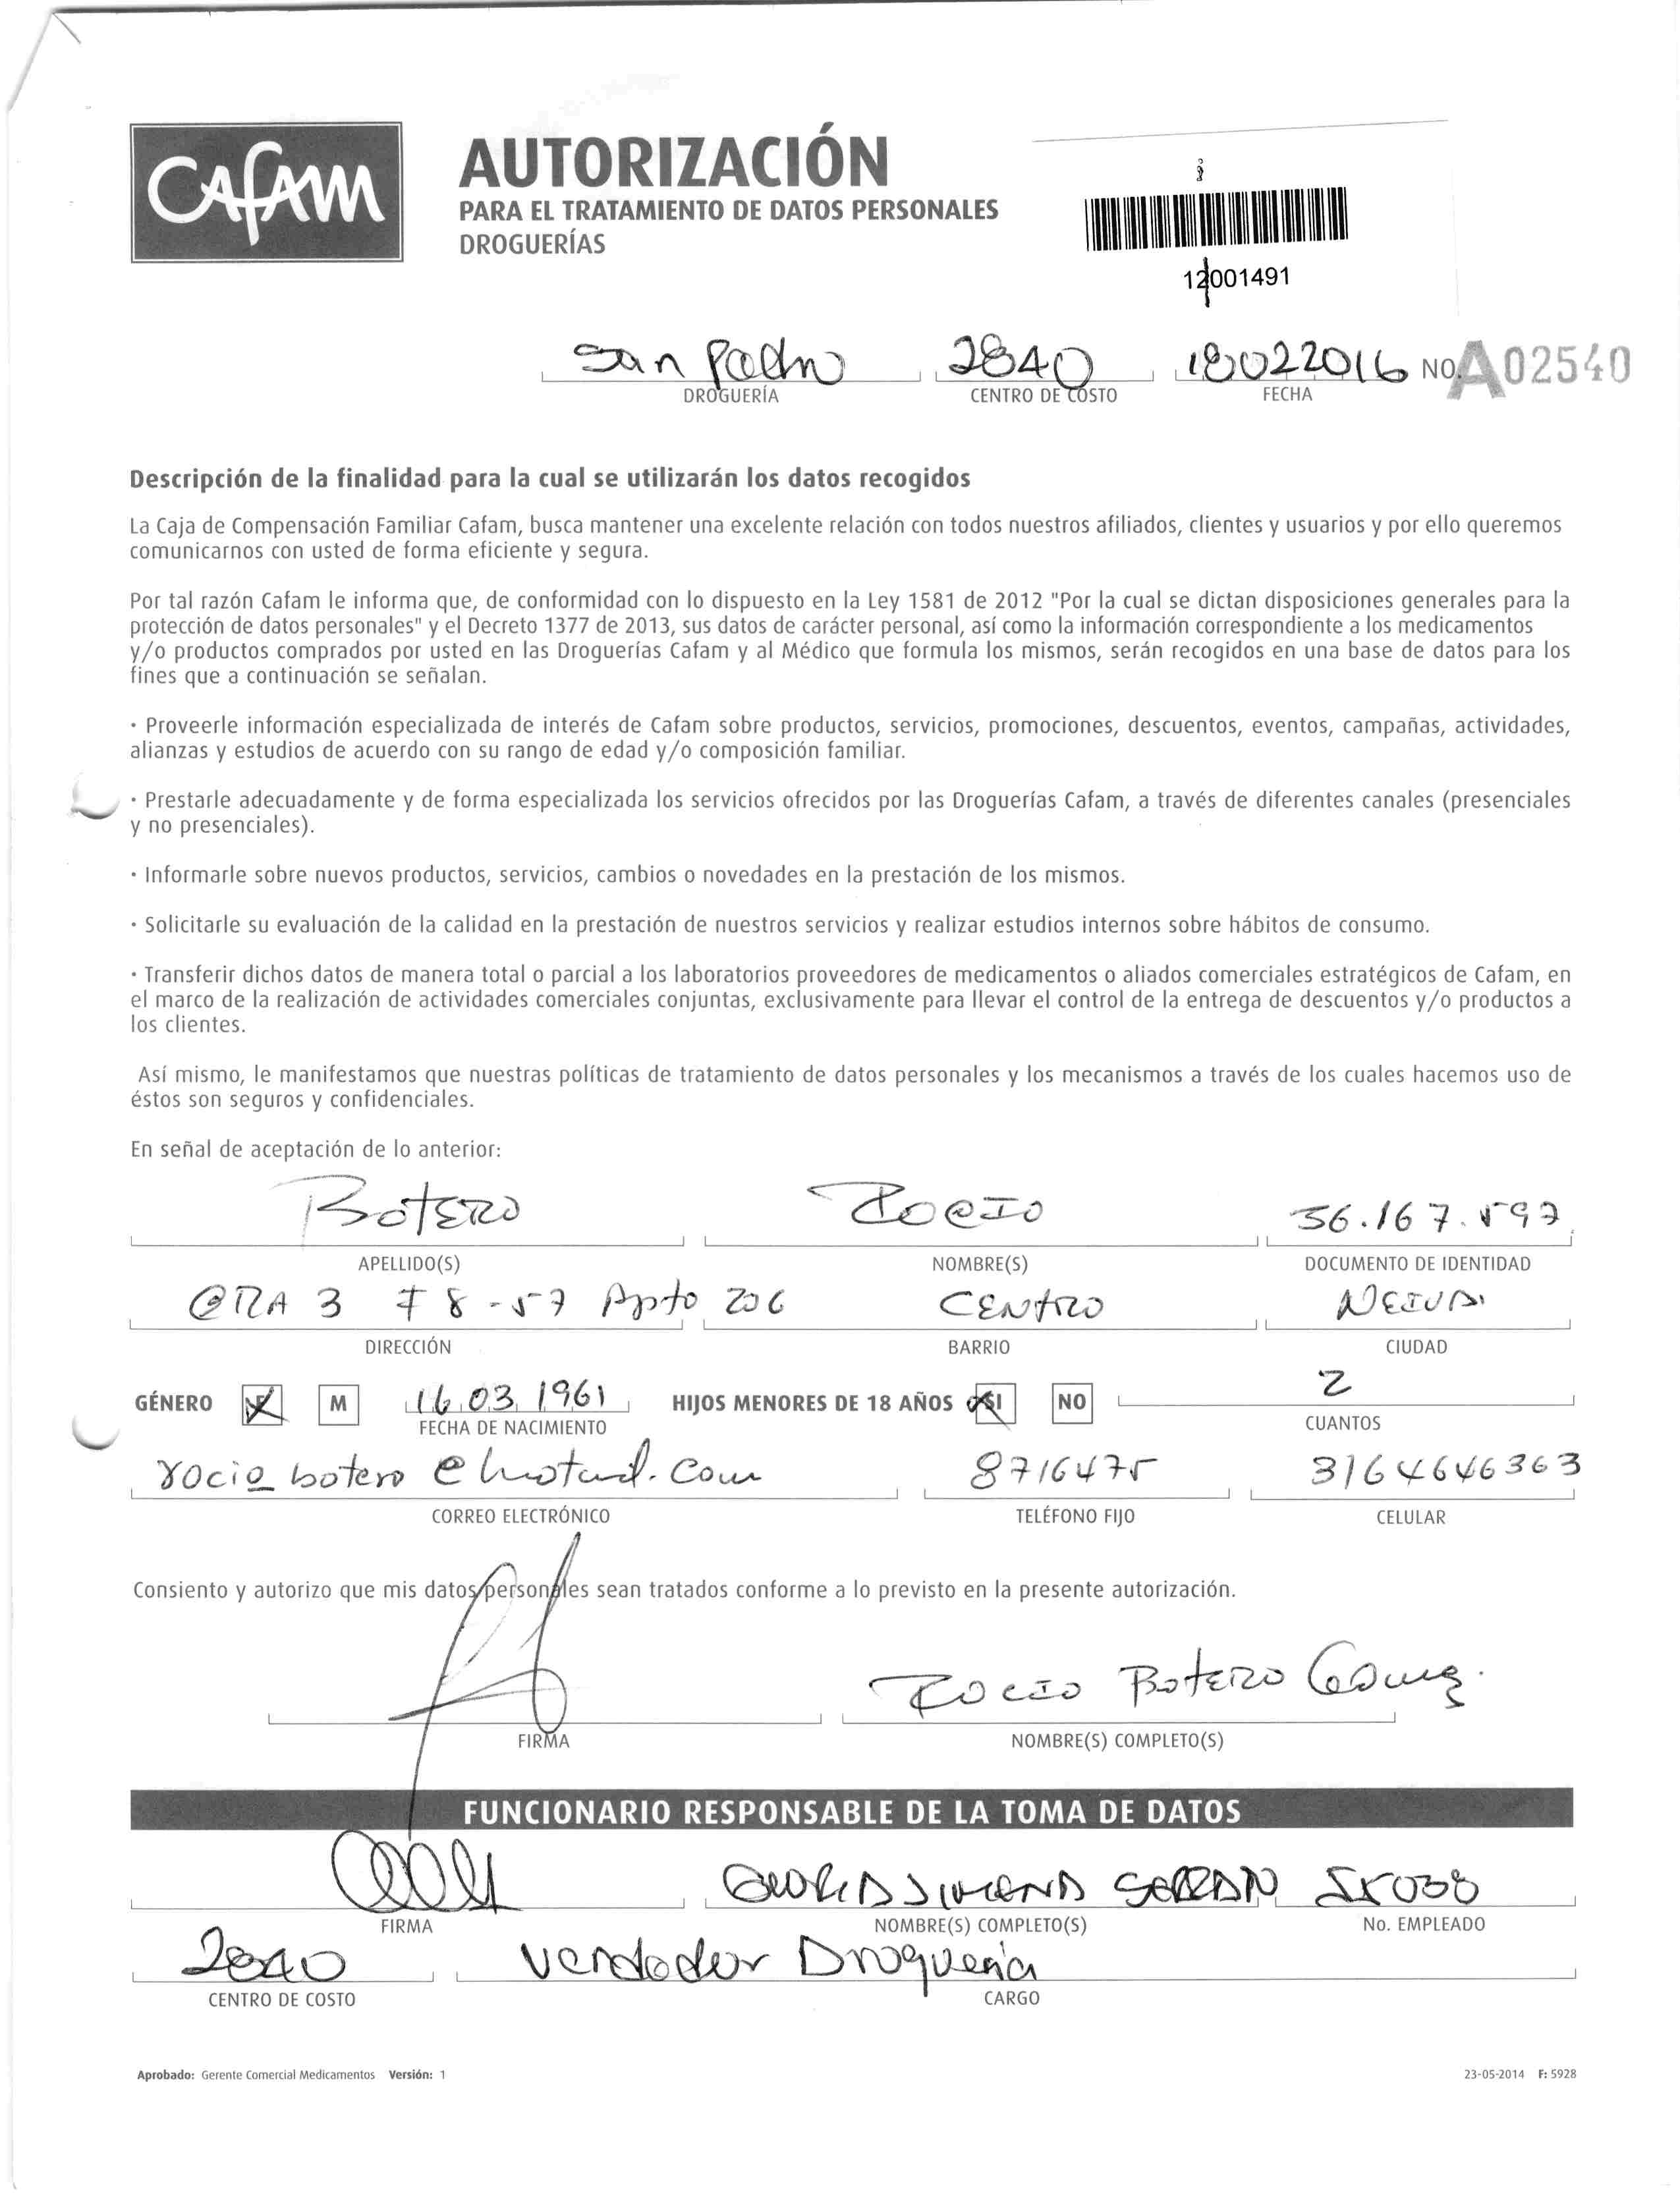 Cafam
AUTORIZACIÓN
PARA EL TRATAMIENTO DE DATOS PERSONALES
DROGUERÍAS
12001491
San Pedro 2840 18022016 NO. A02540
DROGUERÍA CENTRO DE COSTO FECHA
Descripción de la finalidad para la cual se utilizarán los datos recogidos
La Caja de Compensación Familiar Cafam, busca mantener una excelente relación con todos nuestros afiliados, clientes y usuarios y por ello queremos
comunicarnos con usted de forma eficiente y segura.
Por tal razón Cafam le informa que, de conformidad con lo dispuesto en la Ley 1581 de 2012 "Por la cual se dictan disposiciones generales para la
protección de datos personales" y el Decreto 1377 de 2013, sus datos de carácter personal, así como la información correspondiente a los medicamentos
y/o productos comprados por usted en las Droguerías Cafam y al Médico que formula los mismos, serán recogidos en una base de datos para los
fines que a continuación se señalan.
• Proveerle información especializada de interés de Cafam sobre productos, servicios, promociones, descuentos, eventos, campañas, actividades,
alianzas y estudios de acuerdo con su rango de edad y/o composición familiar.
• Prestarle adecuadamente y de forma especializada los servicios ofrecidos por las Droguerías Cafam, a través de diferentes canales (presenciales
y no presenciales).
• Informarle sobre nuevos productos, servicios, cambios o novedades en la prestación de los mismos.
• Solicitarle su evaluación de la calidad en la prestación de nuestros servicios y realizar estudios internos sobre hábitos de consumo.
• Transferir dichos datos de manera total o parcial a los laboratorios proveedores de medicamentos o aliados comerciales estratégicos de Cafam, en
el marco de la realización de actividades comerciales conjuntas, exclusivamente para llevar el control de la entrega de descuentos y/o productos a
los clientes.
Así mismo, le manifestamos que nuestras políticas de tratamiento de datos personales y los mecanismos a través de los cuales hacemos uso de
éstos son seguros y confidenciales.
En señal de aceptación de lo anterior:
Botero Rocio 36.167.597
APELLIDO(S) NOMBRE(S) DOCUMENTO DE IDENTIDAD
CRA 3 # 8-57 Apto 206 CENTRO NEIVA
DIRECCIÓN BARRIO CIUDAD
GÉNERO F M 16 03 1961 HIJOS MENORES DE 18 AÑOS SI NO 2
FECHA DE NACIMIENTO CUANTOS
rocio_botero@hotmail.com 8716475 3164646363
CORREO ELECTRÓNICO TELÉFONO FIJO CELULAR
Consiento y autorizo que mis datos personales sean tratados conforme a lo previsto en la presente autorización.
Rocio Botero Gómez.
FIRMA NOMBRE(S) COMPLETO(S)
FUNCIONARIO RESPONSABLE DE LA TOMA DE DATOS
55038
FIRMA NOMBRE(S) COMPLETO(S) No. EMPLEADO
2840 Vendedor Droguería
CENTRO DE COSTO CARGO
Aprobado: Gerente Comercial Medicamentos Versión: 1 23-05-2014 F: 5928